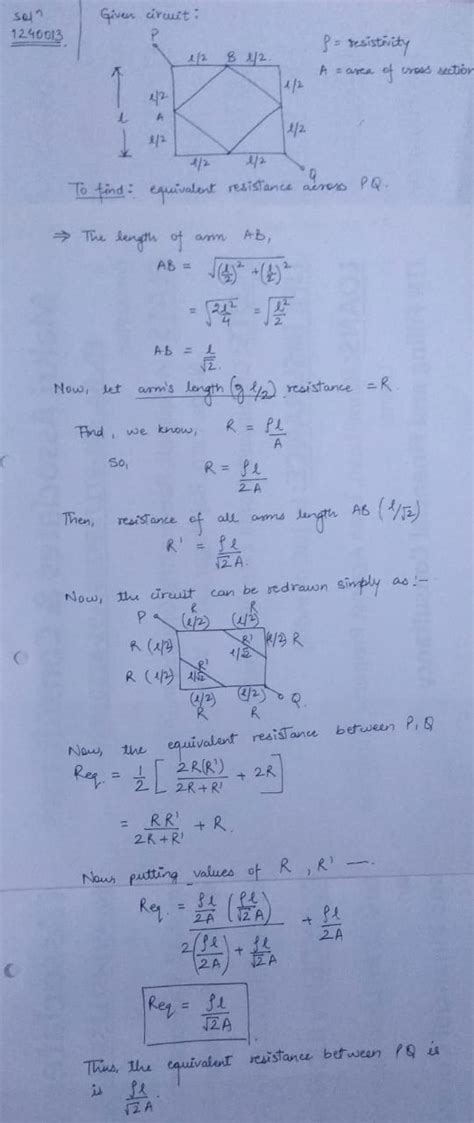 Solⁿ
1240013
Given circuit:
P
l/2 B l/2
ρ = resistivity
A = area of cross section
l
l/2
l/2
A
l/2
l/2
l/2
l/2
Q
To find: equivalent resistance across PQ.
⇒ The length of arm AB,
AB = √((l/2)² + (l/2)²)
= √(2l²/4) = √(l²/2)
AB = l/√2.
Now, let arm's length (of l/2) resistance = R.
And, we know, R = ρl/A
So, R = ρl/2A
Then, resistance of all arms length AB (l/√2)
R' = ρl/√2A.
Now, the circuit can be redrawn simply as :-
R R
P (l/2) (l/2)
R (l/2) R' l/√2 (l/2) R
R (l/2) R' l/√2
(l/2) (l/2) Q
R R
Now, the equivalent resistance between P, Q
Req. = 1/2 [ 2R(R')/2R+R' + 2R ]
= RR'/2R+R' + R.
Now, putting values of R, R' —.
Req. = ρl/2A (ρl/√2A) / 2(ρl/2A) + ρl/√2A + ρl/2A
Req = ρl/√2A.
Thus, the equivalent resistance between PQ is
is ρl/√2A.